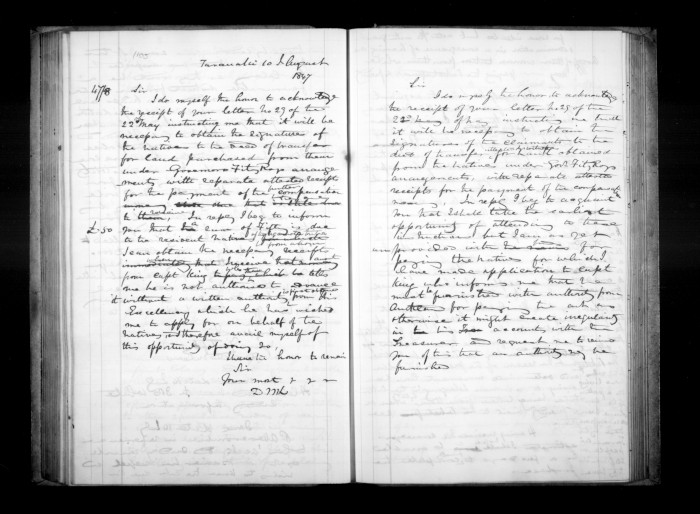 Taranaki 10th August
1847
47/8
Sir
I do myself the honor to acknowledge
the receipt of your letter No 29 of the
22nd May instructing me that it will be
necessary to obtain the signatures of
the natives to the Deed of transfer
for land purchased from them
under Governor Fitz Roys arrange
ments, with separate attested receipts
for the payment of the compensation
to them. In reply I beg to inform
£.50
you that the sum of fifty due
to the resident natives
I can obtain the necessary receipts
immediately that I receive that amount
from Capt King
me he is not authorised to advance
it without a written authority from His
Excellency which he has wished
me to apply for on behalf of the
natives, & therefore avail myself of
this opportunity of doing so.
I have the honor to remain
Sir
Your most & & &
D McL
Sir
I do myself the honor to acknowledge
the receipt of your letter No 29 of the
22nd May instructing me that
it will be necessary to obtain the
signatures of the claimants to the
deed of transfer for land obtained
from the natives under Gov. Fitz Roys
arrangements, with separate attested
receipts for the payment of the compensation
money. In reply I beg to acquaint
you that I shall take the earliest
opportunity of attending to these
instructions, but I am as yet
unprovided with for
paying the natives for which I
have made application to Capt
King who informs me that he
must be furnished with authority from
Auckland for paying the
otherwise it might create irregularity
in his accounts with the
Treasurer and request me to remind
you of this that an authority may be
furnished